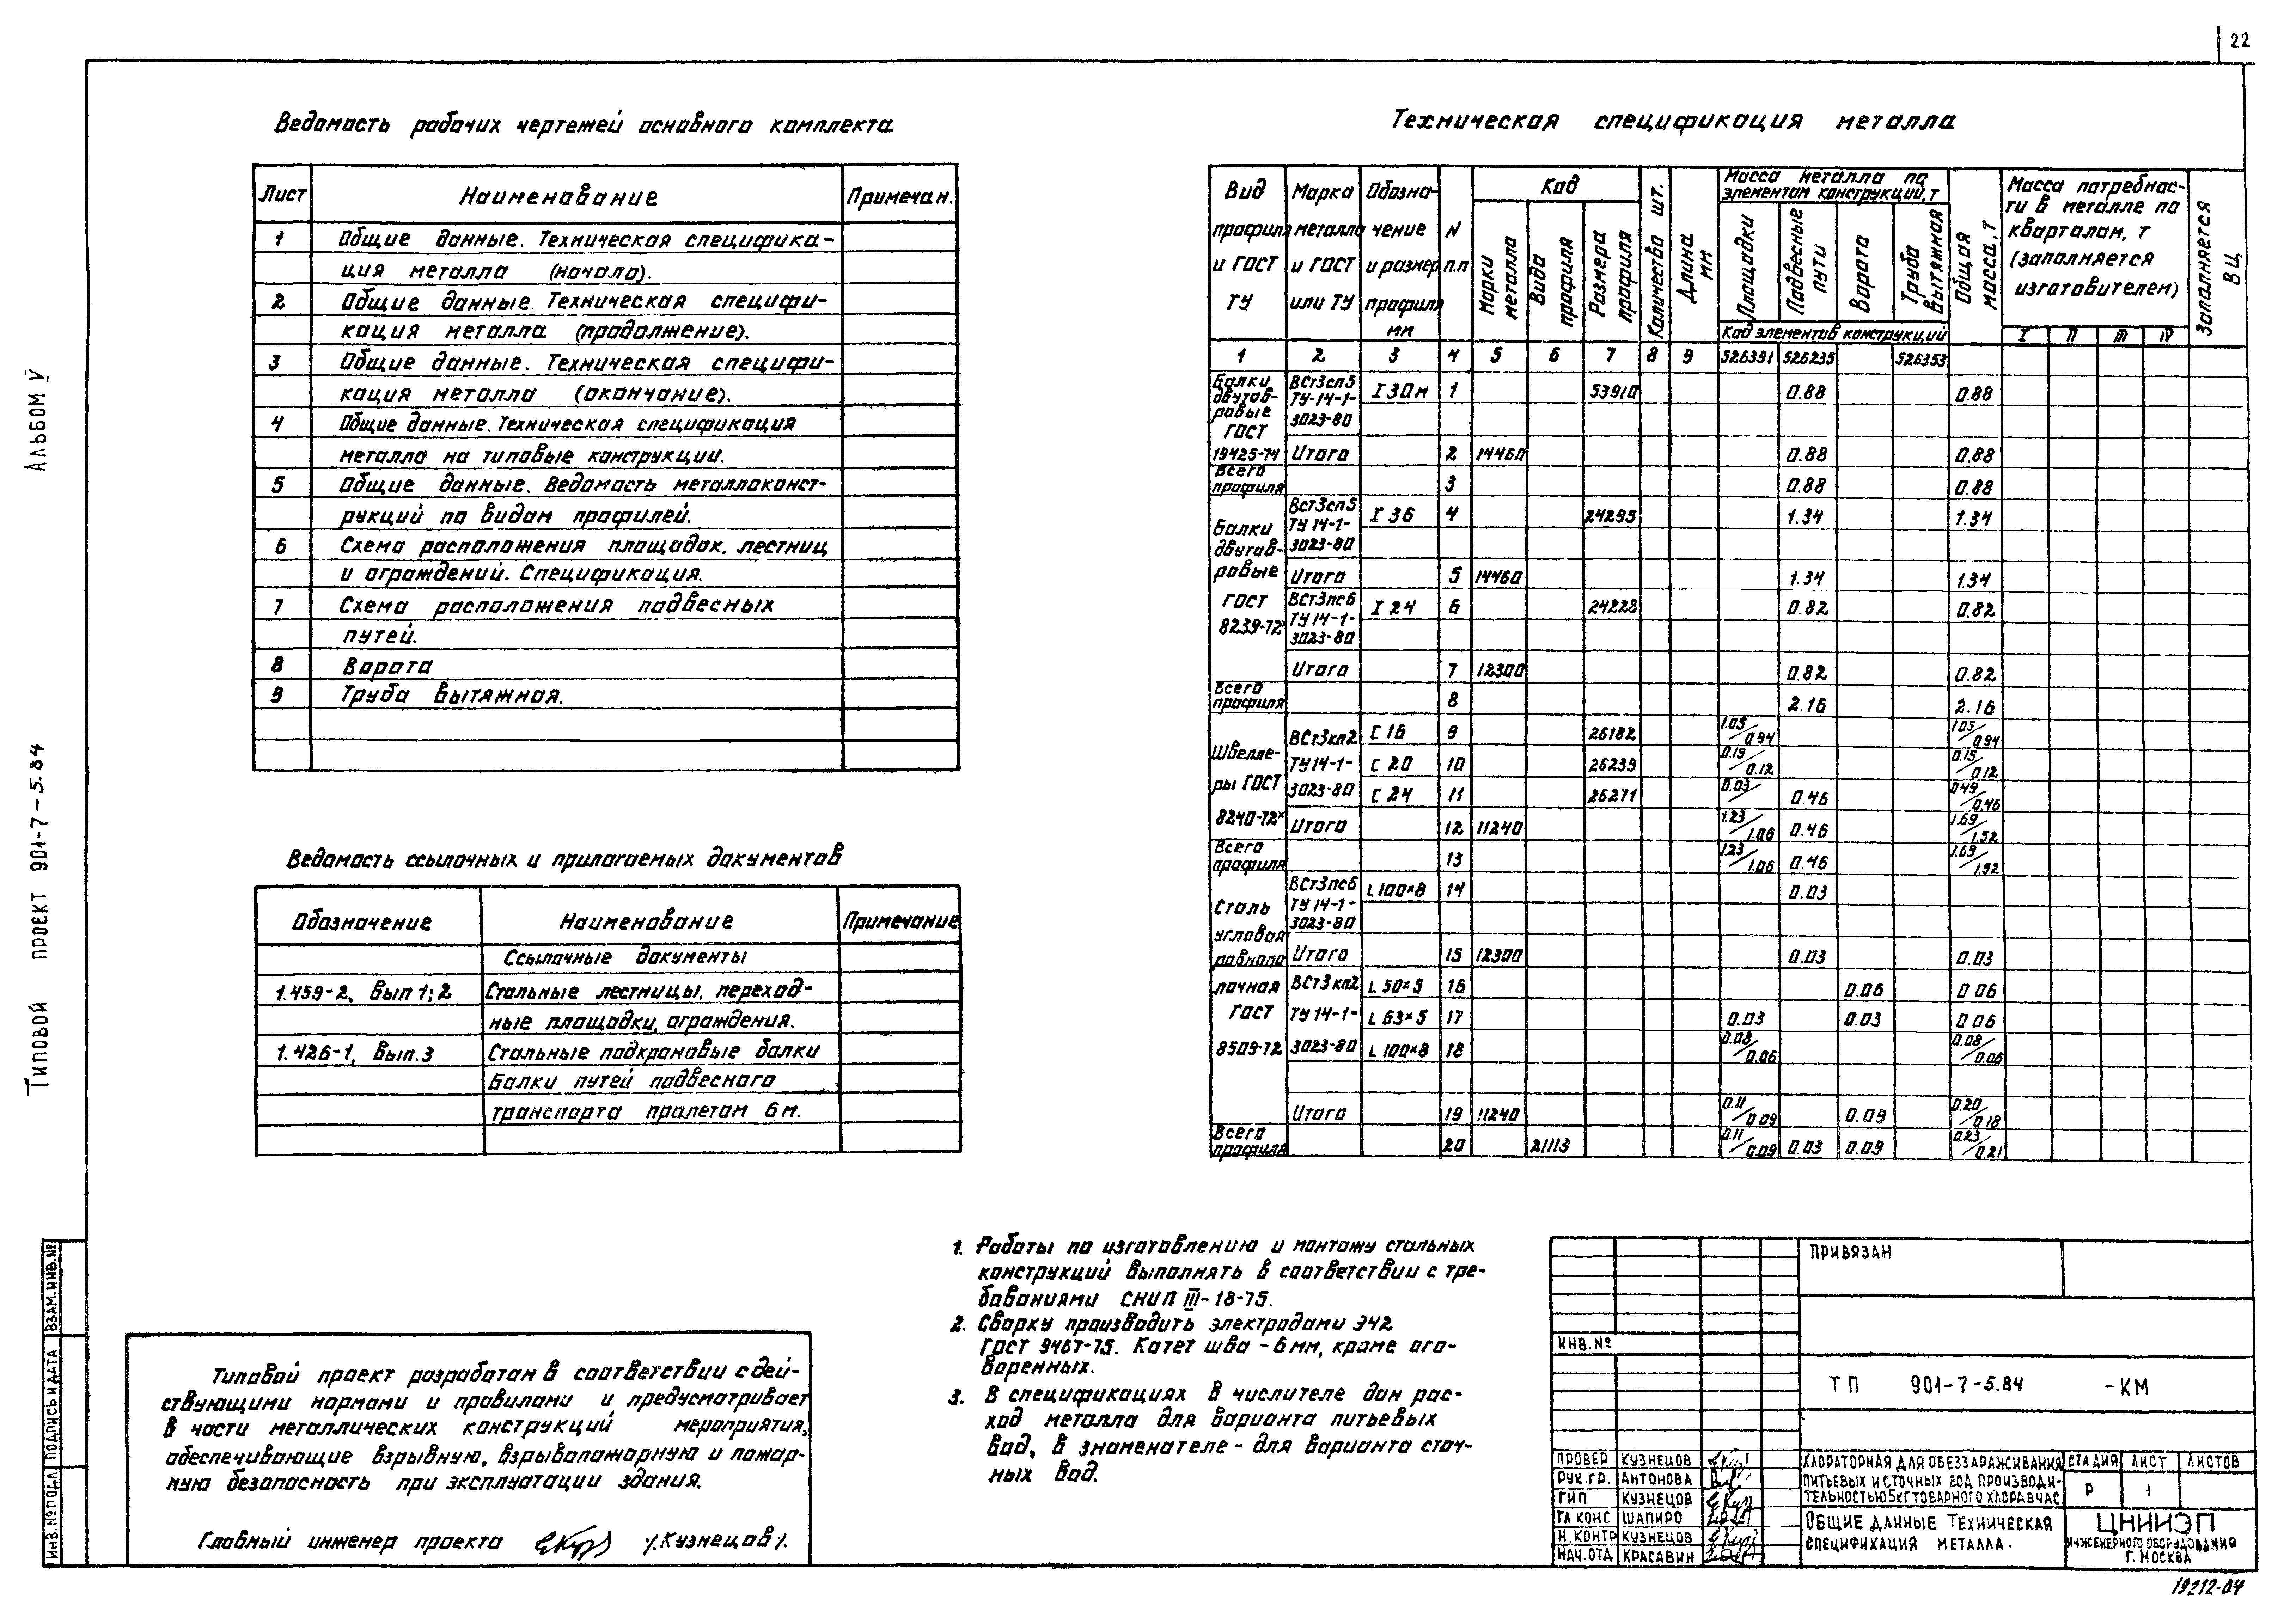 22
Ведомость рабочих чертежей основного комплекта
Лист Наименование Примечан.
1 Общие данные. Техническая специфика-
ция металла (начало).
2 Общие данные. Техническая специфи-
кация металла (продолжение).
3 Общие данные. Техническая специфи-
кация металла (окончание).
4 Общие данные. Техническая спецификация
металла на типовые конструкции.
5 Общие данные. Ведомость металлоконст-
рукций по видам профилей.
6 Схема расположения площадок, лестниц
и ограждений. Спецификация.
7 Схема расположения подвесных
путей.
8 Ворота
9 Труба вытяжная.
Ведомость ссылочных и прилагаемых документов
Обозначение Наименование Примечание
Ссылочные документы
1.459-2, Вып 1; 2 Стальные лестницы, переход-
ные площадки, ограждения.
1.426-1, Вып. 3 Стальные подкрановые балки
Балки путей подвесного
транспорта пролетом 6 м.
Техническая спецификация металла
Вид профиля и ГОСТ ТУ
Марка металла и ГОСТ или ТУ
Обозна-чение и размер профиля мм
N п.п
Код
Марки металла
Вида профиля
Размера профиля
Количество шт.
Длина мм
Масса металла по элементам конструкций, т
Площадки
Подвесные пути
Ворота
Труба вытяжная
Код элементов конструкций
Общая масса, т
Масса потребнос-
ти в металле по
кварталам, т
(заполняется
изготовителем)
I II III IV
Заполняется ВЦ
1 2 3 4 5 6 7 8 9 526391 526235 526353
Балки двутав-ровые ГОСТ 19425-74
ВСт3сп5 ТУ-14-1-3023-80 I 30м 1 53910 0.88 0.88
Итого 2 14460 0.88 0.88
Всего профиля 3 0.88 0.88
Балки двутав-ровые ГОСТ 8239-72*
ВСт3сп5 ТУ 14-1-3023-80 I 36 4 24295 1.34 1.34
Итого 5 14460 1.34 1.34
ВСт3пс6 ТУ 14-1-3023-80 I 24 6 24228 0.82 0.82
Итого 7 12300 0.82 0.82
Всего профиля 8 2.16 2.16
Швелле-ры ГОСТ 8240-72*
ВСт3кп2 ТУ 14-1-3023-80
С 16 9 26182 1.05/0.94 1.05/0.94
С 20 10 26239 0.15/0.12 0.15/0.12
С 24 11 26271 0.03/ 0.46 0.49/0.46
Итого 12 11240 1.23/1.06 0.46 1.69/1.52
Всего профиля 13 1.23/1.06 0.46 1.69/1.52
Сталь угловая равнопо лочная ГОСТ 8509-72
ВСт3пс6 ТУ 14-1-3023-80 L 100×8 14 0.03
Итого 15 12300 0.03 0.03
ВСт3кп2 ТУ 14-1-3023-80
L 50×5 16 0.06 0 06
L 63×5 17 0.03 0.03 0 06
L 100×8 18 0.08/0.06 0.08/0.06
Итого 19 11240 0.11/0.09 0.09 0.20/0.18
Всего профиля 20 21113 0.11/0.09 0.03 0.09 0.23/0.21
Альбом V
Типовой проект 901-7-5.84
ИНВ.№ ПОДЛ. ПОДПИСЬ И ДАТА ВЗАМ.ИНВ.№
Типовой проект разработан в соответствии с дей-
ствующими нормами и правилами и предусматривает
в части металлических конструкций мероприятия,
обеспечивающие взрывную, взрывопожарную и пожар-
ную безопасность при эксплуатации здания.
Главный инженер проекта /Кузнецов/.
1. Работы по изготовлению и монтажу стальных
конструкций выполнять в соответствии с тре-
бованиями СНИП III-18-75.
2. Сварку производить электродами Э42
ГОСТ 9467-75. Катет шва - 6мм, кроме ого-
воренных.
3. В спецификациях в числителе дан рас-
ход металла для варианта питьевых
вод, в знаменателе - для варианта сточ-
ных вод.
ПРИВЯЗАН
ИНВ.№
ТП 901-7-5.84 -КМ
ПРОВЕР КУЗНЕЦОВ
РУК.ГР. АНТОНОВА
ГИП КУЗНЕЦОВ
ГЛ КОНС ШАПИРО
Н.КОНТР КУЗНЕЦОВ
НАЧ.ОТД КРАСАВИН
ХЛОРАТОРНАЯ ДЛЯ ОБЕЗЗАРАЖИВАНИЯ
ПИТЬЕВЫХ И СТОЧНЫХ ВОД ПРОИЗВОДИ-
ТЕЛЬНОСТЬЮ 5КГ ТОВАРНОГО ХЛОРА В ЧАС
СТАДИЯ ЛИСТ ЛИСТОВ
Р 1
ОБЩИЕ ДАННЫЕ ТЕХНИЧЕСКАЯ
СПЕЦИФИКАЦИЯ МЕТАЛЛА.
ЦНИИЭП
ИНЖЕНЕРНОГО ОБОРУДОВАНИЯ
Г. МОСКВА
19212-04